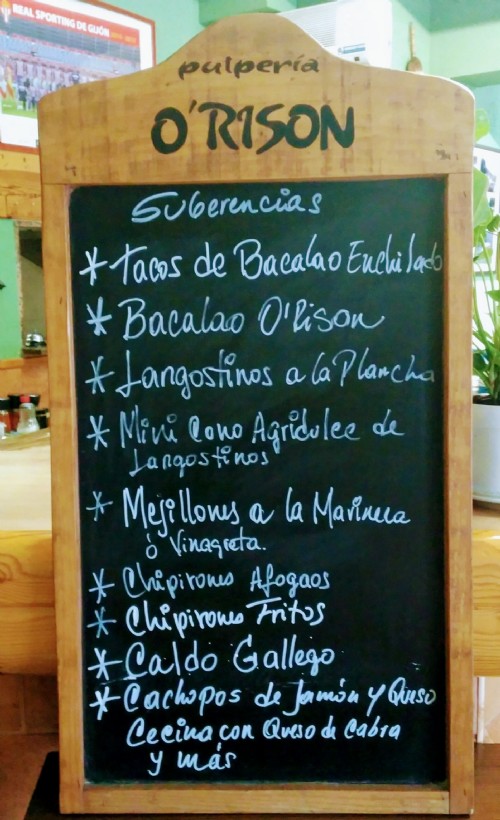 REAL SPORTING DE GIJÓN
pulpería
O'RISON
Sugerencias
* Tacos de Bacalao Enchilado
* Bacalao O'Rison
* Langostinos a la Plancha
* Mini Cono Agridulce de
Langostinos
* Mejillones a la Marinera
ò Vinagreta.
* Chipirones Afogaos
* Chipirones Fritos
* Caldo Gallego
* Cachopos de Jamón y Queso
Cecina con Queso de Cabra
y más